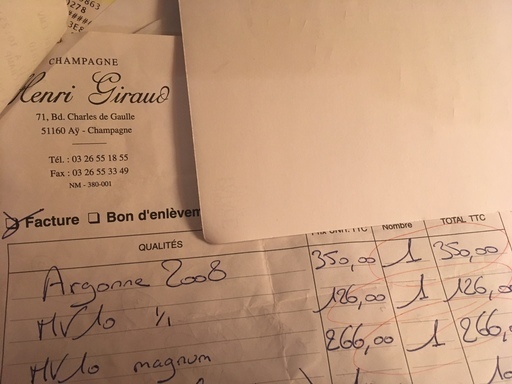 CHAMPAGNE
Henri Giraud
71, Bd. Charles de Gaulle
51160 Aÿ - Champagne
Tél. : 03 26 55 18 55
Fax : 03 26 55 33 49
NM - 380-001
Facture ☐ Bon d'enlèvem
QUALITÉS Prix Unit. TTC Nombre TOTAL TTC
Argonne 2008 350,00 1 350,00
MV10 1/1 126,00 1 126,00
MV10 magnum 266,00 1 266,